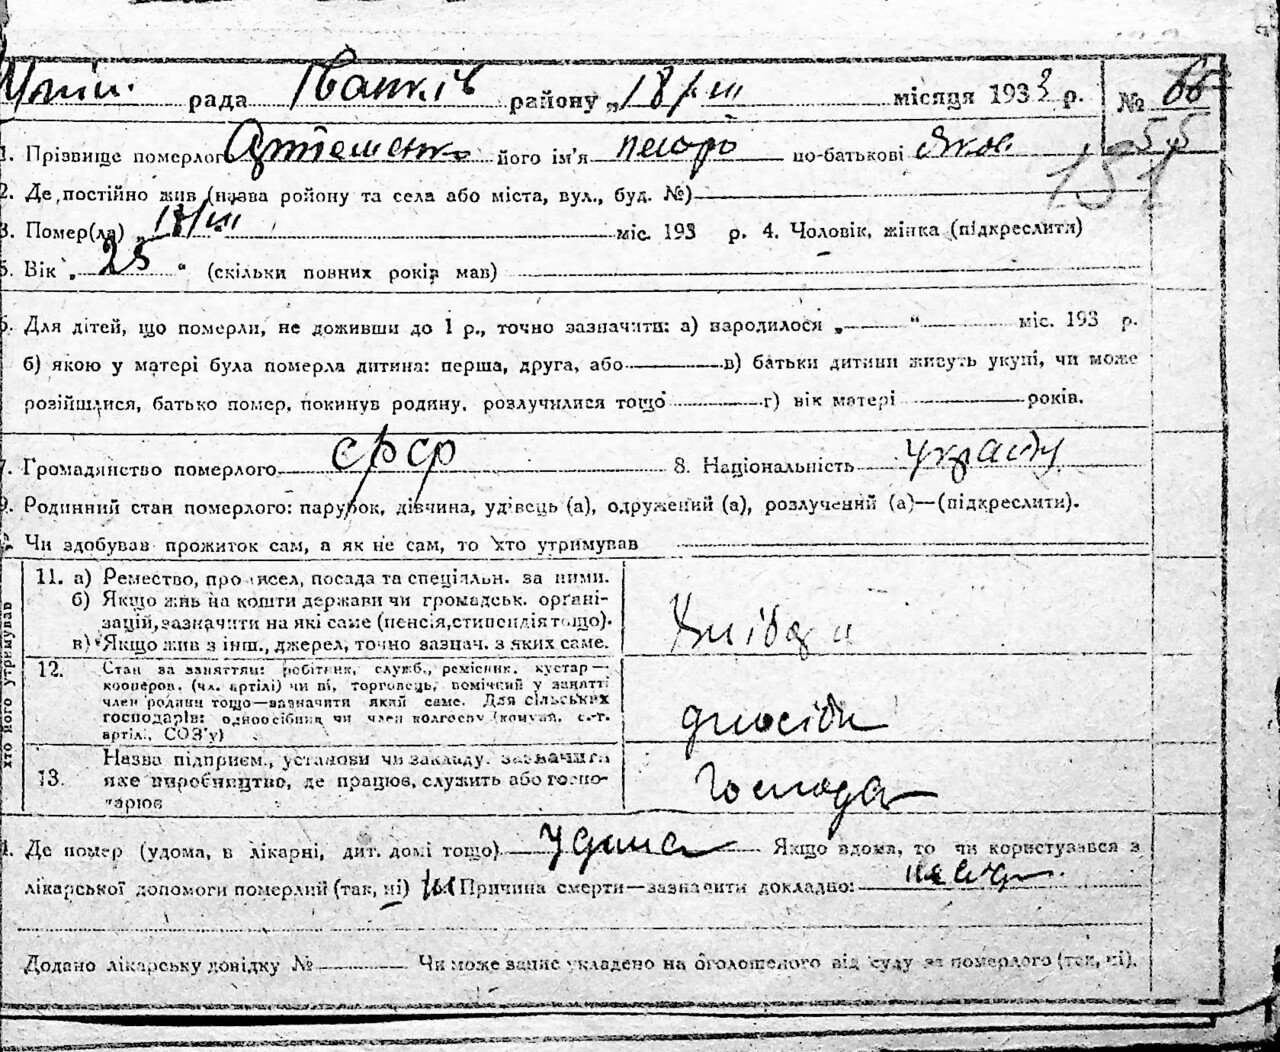 рада Іванків району „18/III місяця 1933 р. № 66
55
1. Прізвище померлого Артеменко його ім'я по-батькові Яков
151
2. Де постійно жив (назва ройону та села або міста, вул., буд. №)
3. Помер(ла) „ 17/III міс. 193 р. 4. Чоловік, жінка (підкреслити)
5. Вік „ 25 “ (скільки повних років мав)
6. Для дітей, що померли, не доживши до 1 р., точно зазначити: а) народилося „ “ міс. 193 р.
б) якою у матері була померла дитина: перша, друга, або в) батьки дитини живуть укупі, чи може
розійшлися, батько помер, покинув родину, розлучилися тощо г) вік матері років.
7. Громадянство померлого СРСР 8. Національність
9. Родинний стан померлого: парубок, дівчина, удівець (а), одружений (а), розлучений (а)—(підкреслити).
Чи здобував прожиток сам, а як не сам, то хто утримував
хто його утримував
11. а) Ремество, промисел, посада та спеціяльн. за ними.
б) Якщо жив на кошти держави чи громадськ. органі-
зацій, зазначити на які саме (пенсія, стипендія тощо).
в) Якщо жив з інш., джерел, точно зазнач. з яких саме.
12. Стан за заняттям: робітник, служб., ремісник. кустар—
кооперов. (чл. артілі) чи ні, торговець, помічний у занятті
член родини тощо—зазначити який саме. Для сільських
господарів: одноосібник чи член колгоспу (комуни, с.-г.
артіл., СОЗ'у)
13. Назва підприєм., установи чи закладу. зазначити
яке виробництво, де працює, служить або госпо-
дарює
Де помер (удома, в лікарні, дит. домі тощо). удома Якщо вдома, то чи користувався з
лікарської допомоги померлий (так, ні) Причина смерти—зазначити докладно:
Додано лікарську довідку № Чи може запис укладено на оголошеного від суду за померлого (так, ні).